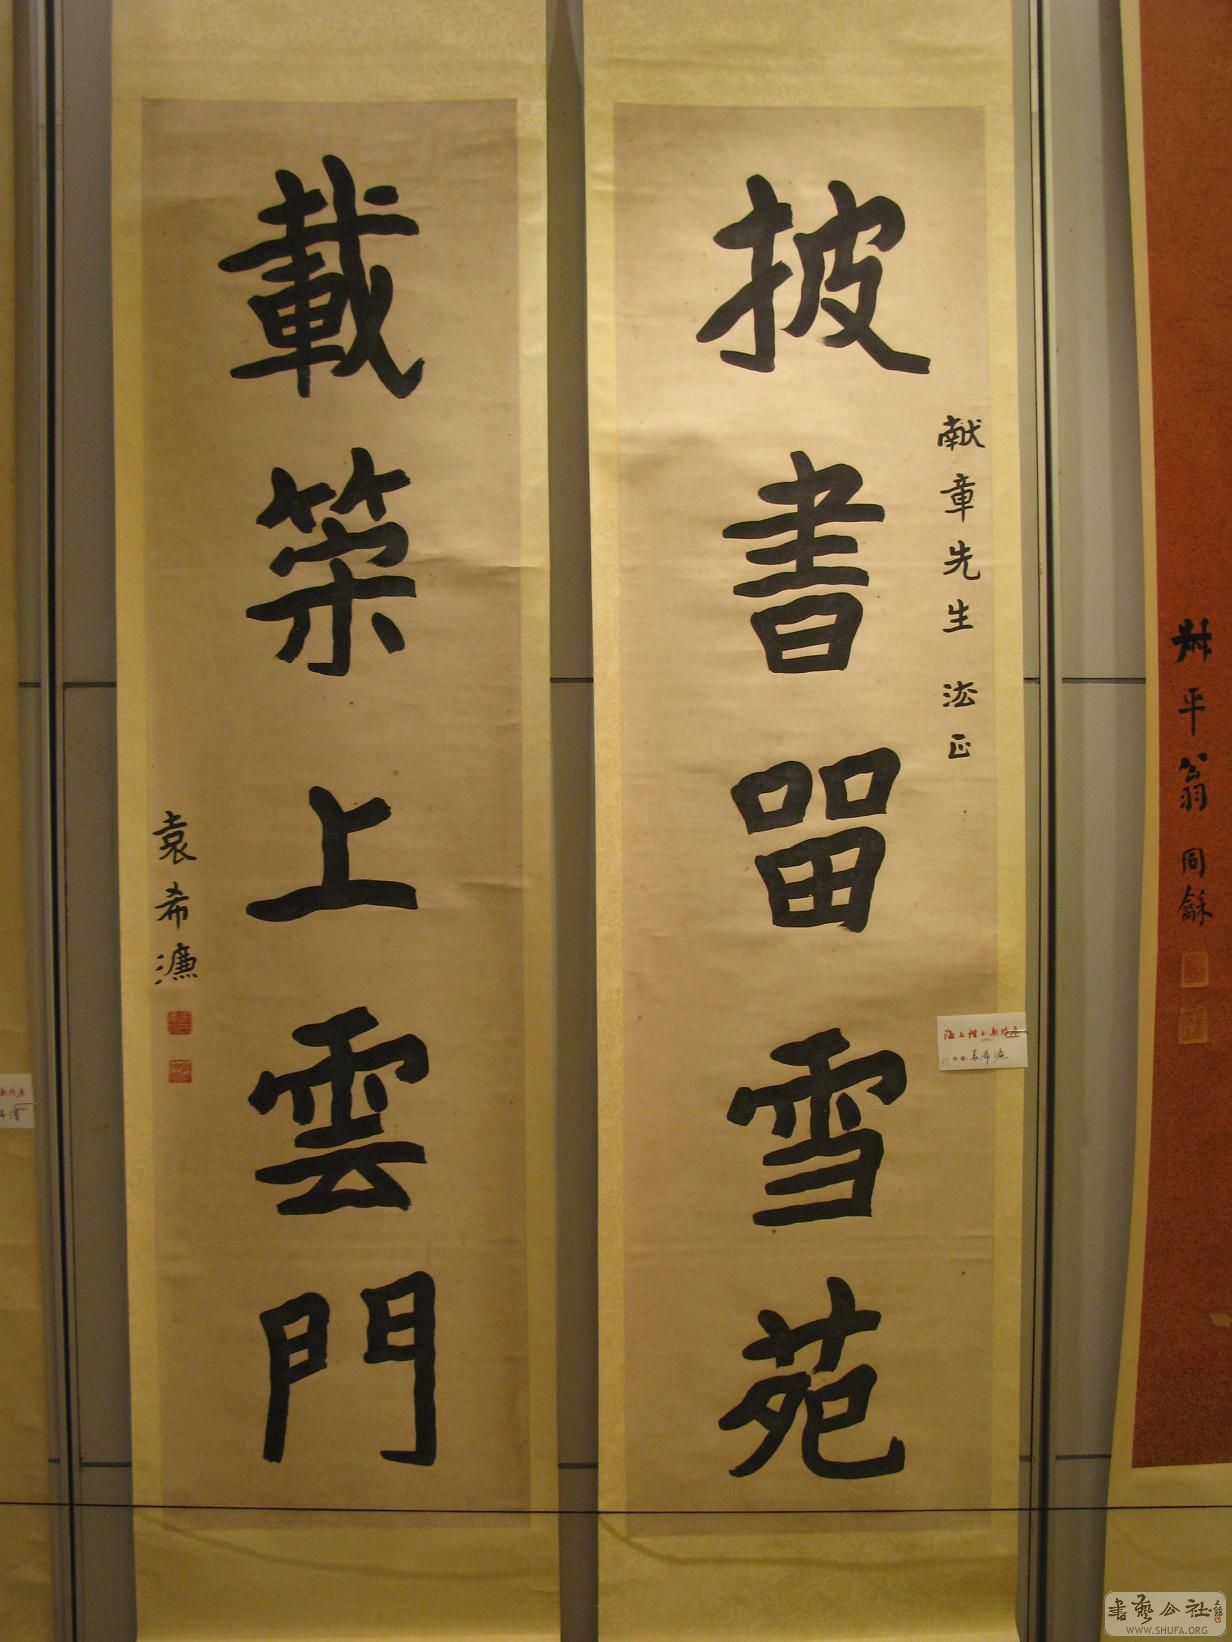 披書畱雪苑
献章先生法正
載筞上雲門
袁希濂
叔平翁同龢
作者:袁希濂
書藝公社
WWW.SHUFA.ORG